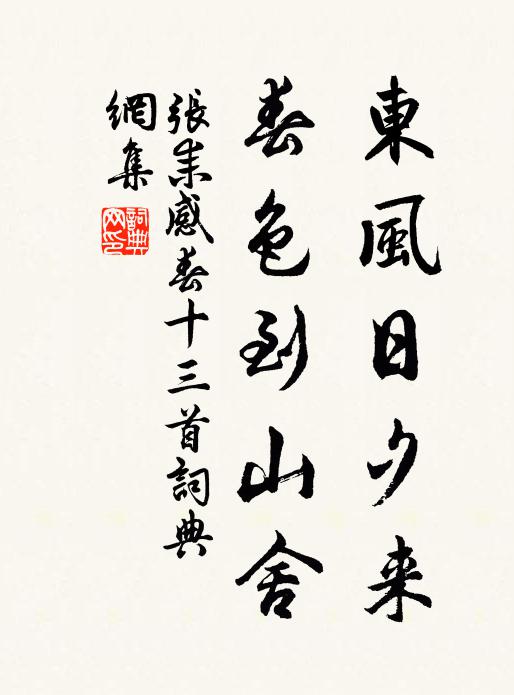 東風日夕来
春色到山舍
張耒感春十三首詞典
網集
詞典
网印